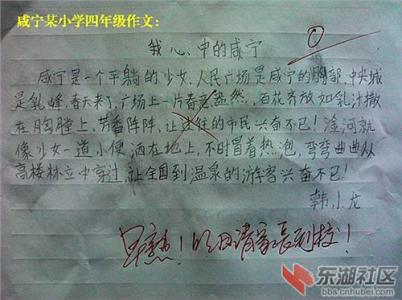 咸宁某小学四年级作文:
0
我心中的咸宁
咸宁是一个平躺的少女,人民广场是咸宁的胸部,中央城
是乳峰,春天来了,广场上一片春意盎然,百花齐放如乳汁撒
在胸膛上,芳香阵阵,让过往的市民兴奋不已!淦河就
像少女一道小便洒在地上,不时冒着热泡,弯弯曲曲从
高楼林立中穿过,让全国到温泉的游客兴奋不已!
韩小龙
早熟!明日请家长到校!
东湖社区
bbs.cnhubei.com